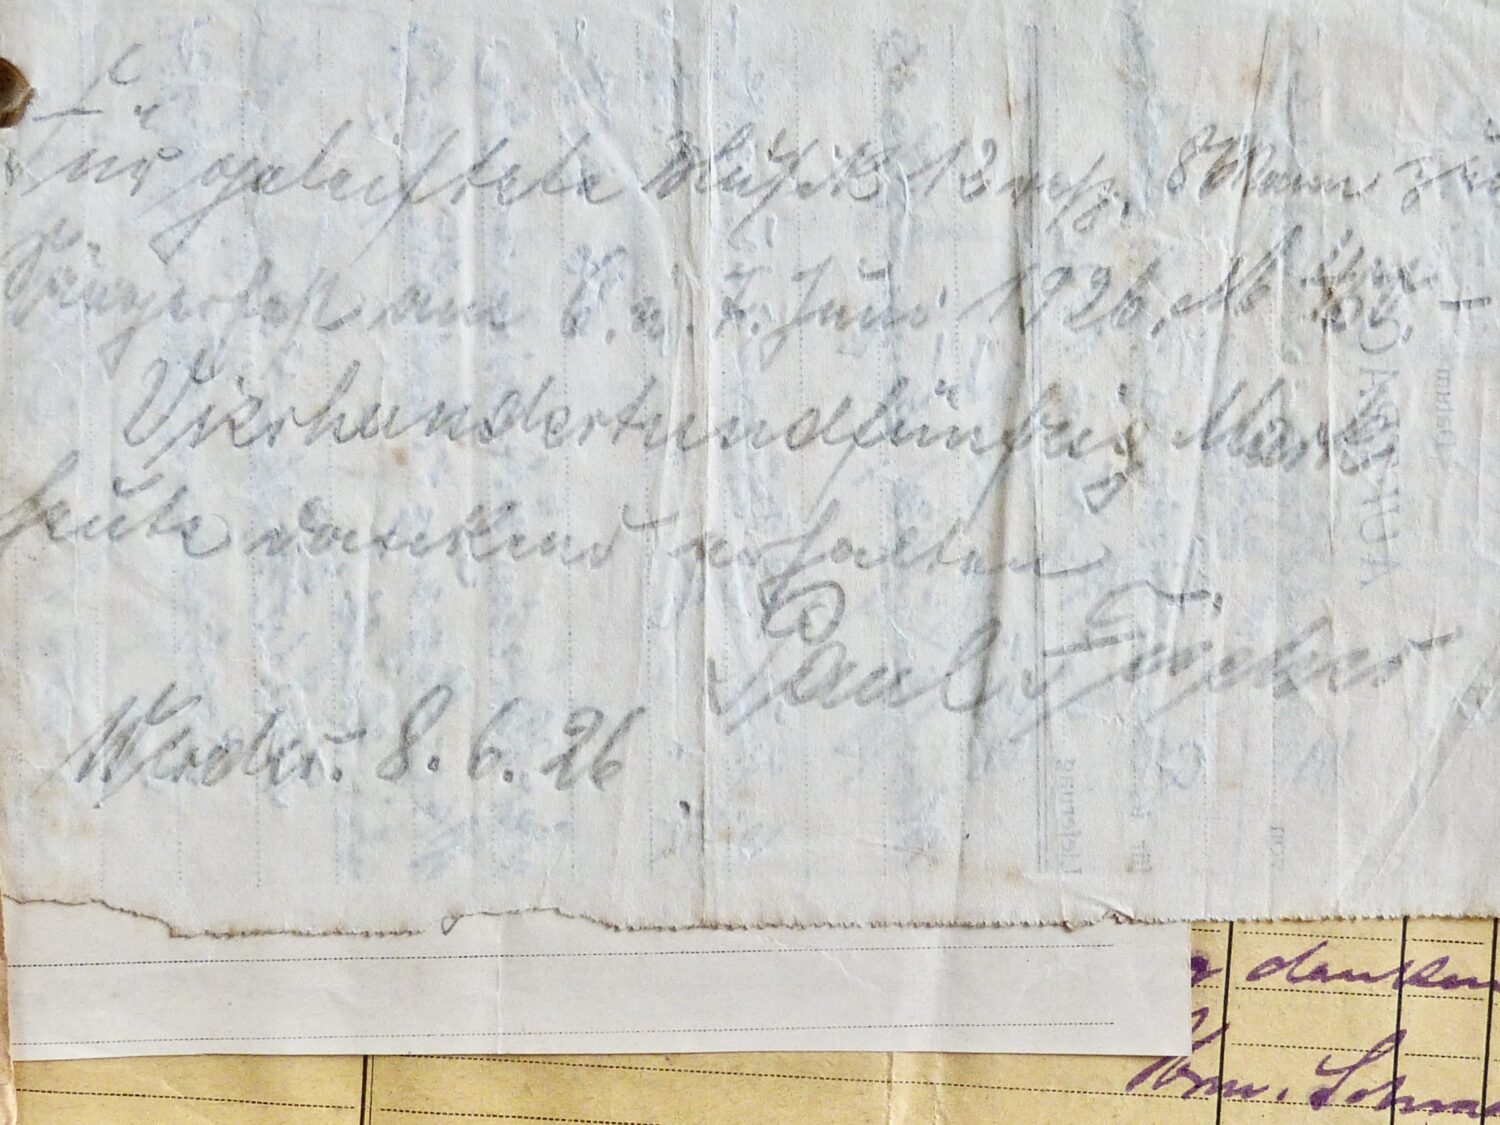 Für geleistete Musik 13 resp. 8 Mann zum
Sängerfest am 6. u. 7. Juni 1926, M
Vierhundertundfünfzig Mark
heute dankend erhalten
Paul
Werder. 8. 6. 26
danken
Lieferung
von